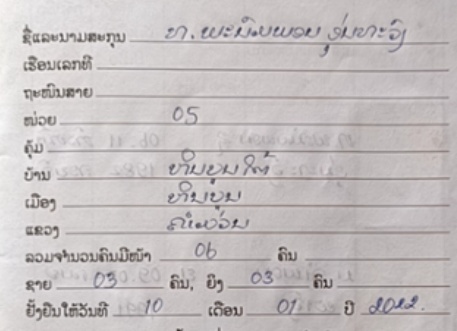 ຊື່ແລະນາມສະກຸນ ທ. ພະນົມພອນ
ເຮືອນເລກທີ
ຖະໜົນສາຍ
ໜ່ວຍ 05
ຄຸ້ມ
ບ້ານ ຫີນບູນໃຕ້
ເມືອງ ຫີນບູນ
ແຂວງ ຄຳມ່ວນ
ລວມຈຳນວນຄົນມີໜ້າ 06 ຄົນ
ຊາຍ 03 ຄົນ, ຍິງ 03 ຄົນ
ຢັ້ງຢືນໃຫ້ວັນທີ 10 ເດືອນ 01 ປີ 2022.